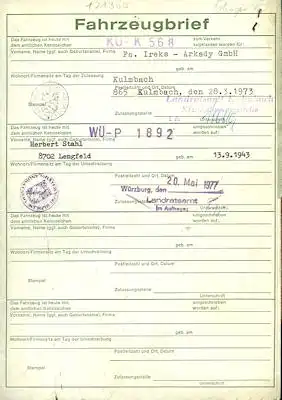 121360
Fahrzeugbrief
Das Fahrzeug ist heute mit
dem amtlichen Kennzeichen KU-K 568 zum Verkehr
zugelassen worden für:
Vorname, Name (ggf. auch Geburtsname), Firma Fa. Ireks - Arkady GmbH
geb. am
Wohnort/Firmensitz am Tag der Zulassung Kulmbach
Postleitzahl und Ort, Datum
865 Kulmbach, den 28.3.1973
Landratsamt Kulmbach
Stempel
Zulassungsstelle
Unterschrift
Das Fahrzeug ist heute mit
dem amtlichen Kennzeichen WÜ-P 1892 umgeschrieben
worden auf:
Vorname, Name (ggf. auch Geburtsname), Firma
Herbert Stahl
geb. am
8702 Lengfeld 13.9.1943
Wohnort/Firmensitz am Tag der Umschreibung
Postleitzahl und Ort, Datum
Würzburg, den 20. Mai 1977
Landratsamt
Im Auftrag
Zulassungsstelle
Unterschrift
Das Fahrzeug ist heute mit
dem amtlichen Kennzeichen umgeschrieben
worden auf:
Vorname, Name (ggf. auch Geburtsname), Firma
geb. am
Wohnort/Firmensitz am Tag der Umschreibung
Postleitzahl und Ort, Datum
Stempel
Zulassungsstelle
Unterschrift
Das Fahrzeug ist heute mit
dem amtlichen Kennzeichen umgeschrieben
worden auf:
Vorname, Name (ggf. auch Geburtsname), Firma
geb. am
Wohnort/Firmensitz am Tag der Umschreibung
Postleitzahl und Ort, Datum
Stempel
Zulassungsstelle
Unterschrift